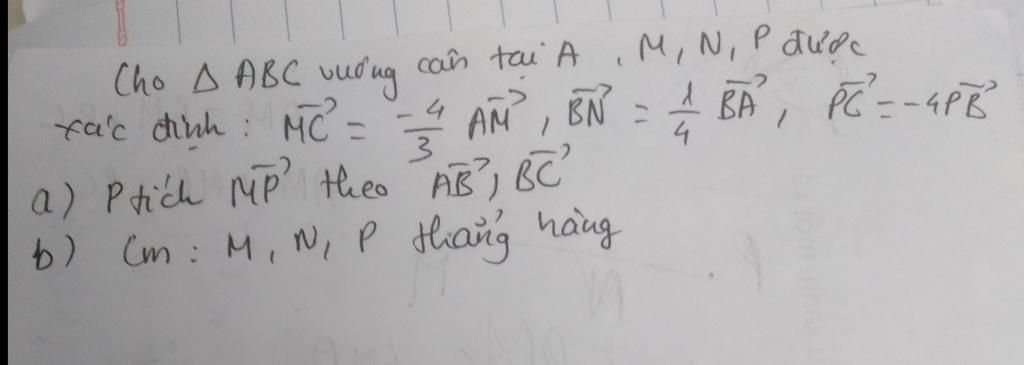 Cho Δ ABC vuông cân tại A. M, N, P được
xác định: $\overrightarrow{MC} = \frac{-4}{3} \overrightarrow{AM}$, $\overrightarrow{BN} = \frac{1}{4} \overrightarrow{BA}$, $\overrightarrow{PC} = -4\overrightarrow{PB}$
a) P tích $\overrightarrow{MP}$ theo $\overrightarrow{AB}$, $\overrightarrow{BC}$
b) Cm: M, N, P thẳng hàng